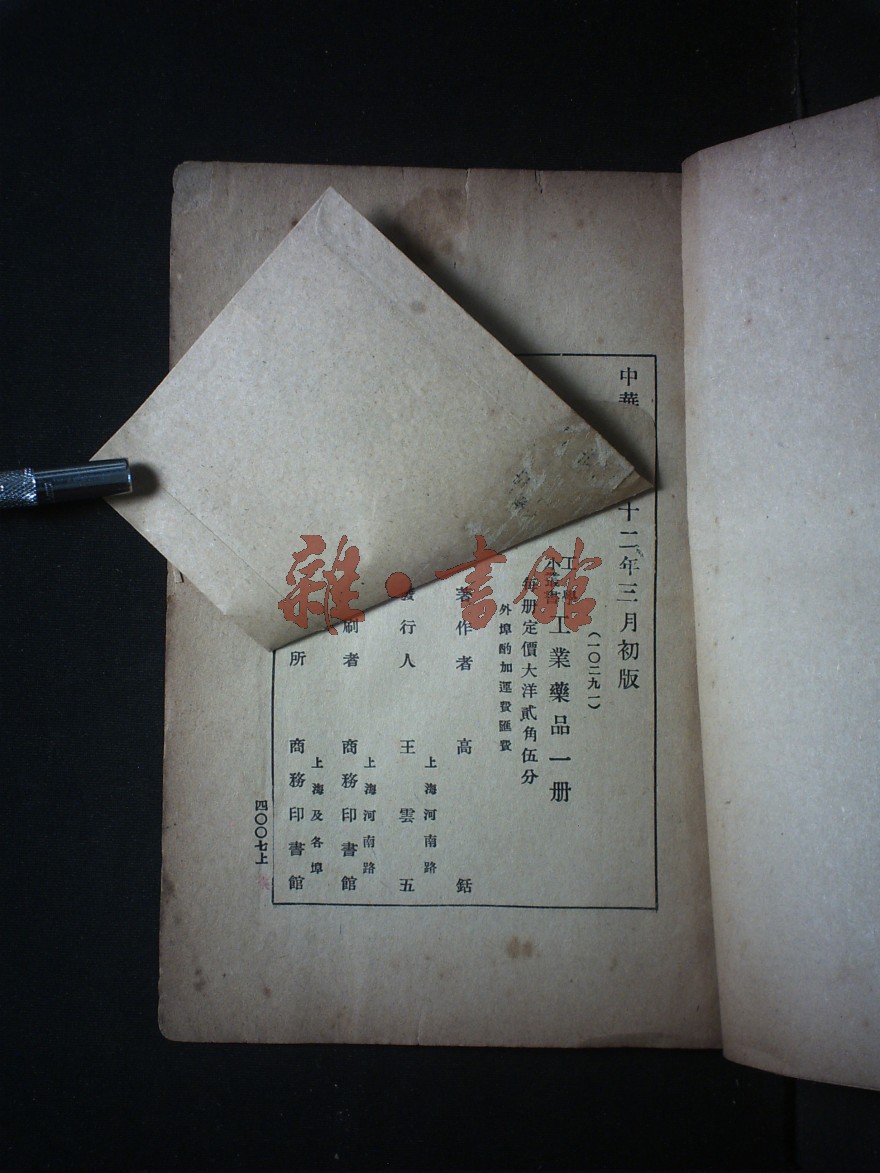 中華
十二年三月初版
(一〇二九一)
工學
小叢書
工業藥品一册
每册定價大洋貳角伍分
外埠酌加運費匯費
著作者 高銛
發行人 王雲五
上海河南路
刷者 商務印書館
上海河南路
所 商務印書館
上海及各埠
四〇〇七上
雜·書館